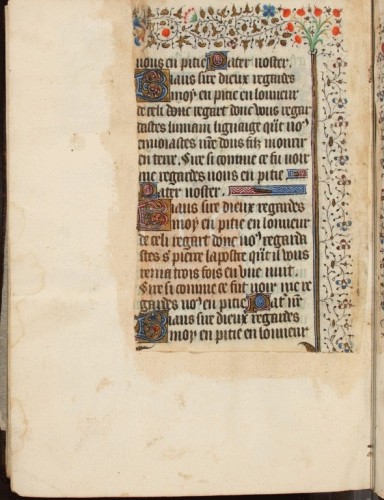 nous en pitie Pater noster.
Biaus sire dieux regardes
moy en pitie en lonneur
de celi donc regart donc vous regar
dastes lumain lignaige qñt no9
enuoiastes nr̃e dous filz mourir
en terre. Sire si comme ce fu voir
me regardes nous en pitie
Pater noster.
Biaus sire dieux regardes
moy en pitie en lonneur
de celi regart donc no9 regarda
stes st pierre lapostre qñt il vous
renia trois fois en vne nuit.
Sire si comme ce fut voir me re
gardes no9 en pitie Pat̃ nr̃
Biaus sire dieux regardes
moy en pitie en lonneur